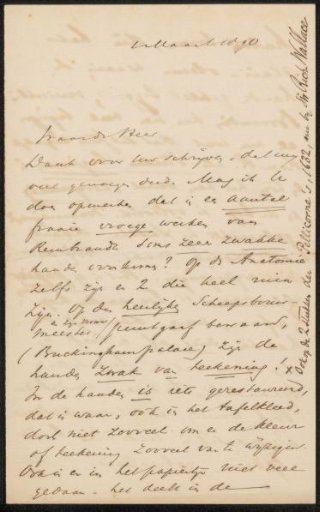 Maart 1890
Waarde Heer
Dank voor Uw schrijven, dat mij
veel genoegen deed. Mag ik U
doen opmerken dat in een aantal
fraaie vroege werken van
Rembrandt soms zeer zwakke
handen voorkomen? Op de Anatomie
zelfs zijn er 2 die heel
zijn. Op den heerlijke Scheepsbouw-
meester, & zijn vrouw, puntgaaf bewaard,
(Buckingham palace) zijn de
handen zwak van teekening! x
In de handen is iets gerestaureerd,
dat is waar, ook in het tafelkleed,
doch niet zooveel om er de kleur
of teekening zooveel van te wijzigen.
Ook is er in het papiertje niet veel
gedaan. het deelt in de
x Ook op de 2 stukken der Pellicorne's, 1632, aan bij Sir Rich Wallace